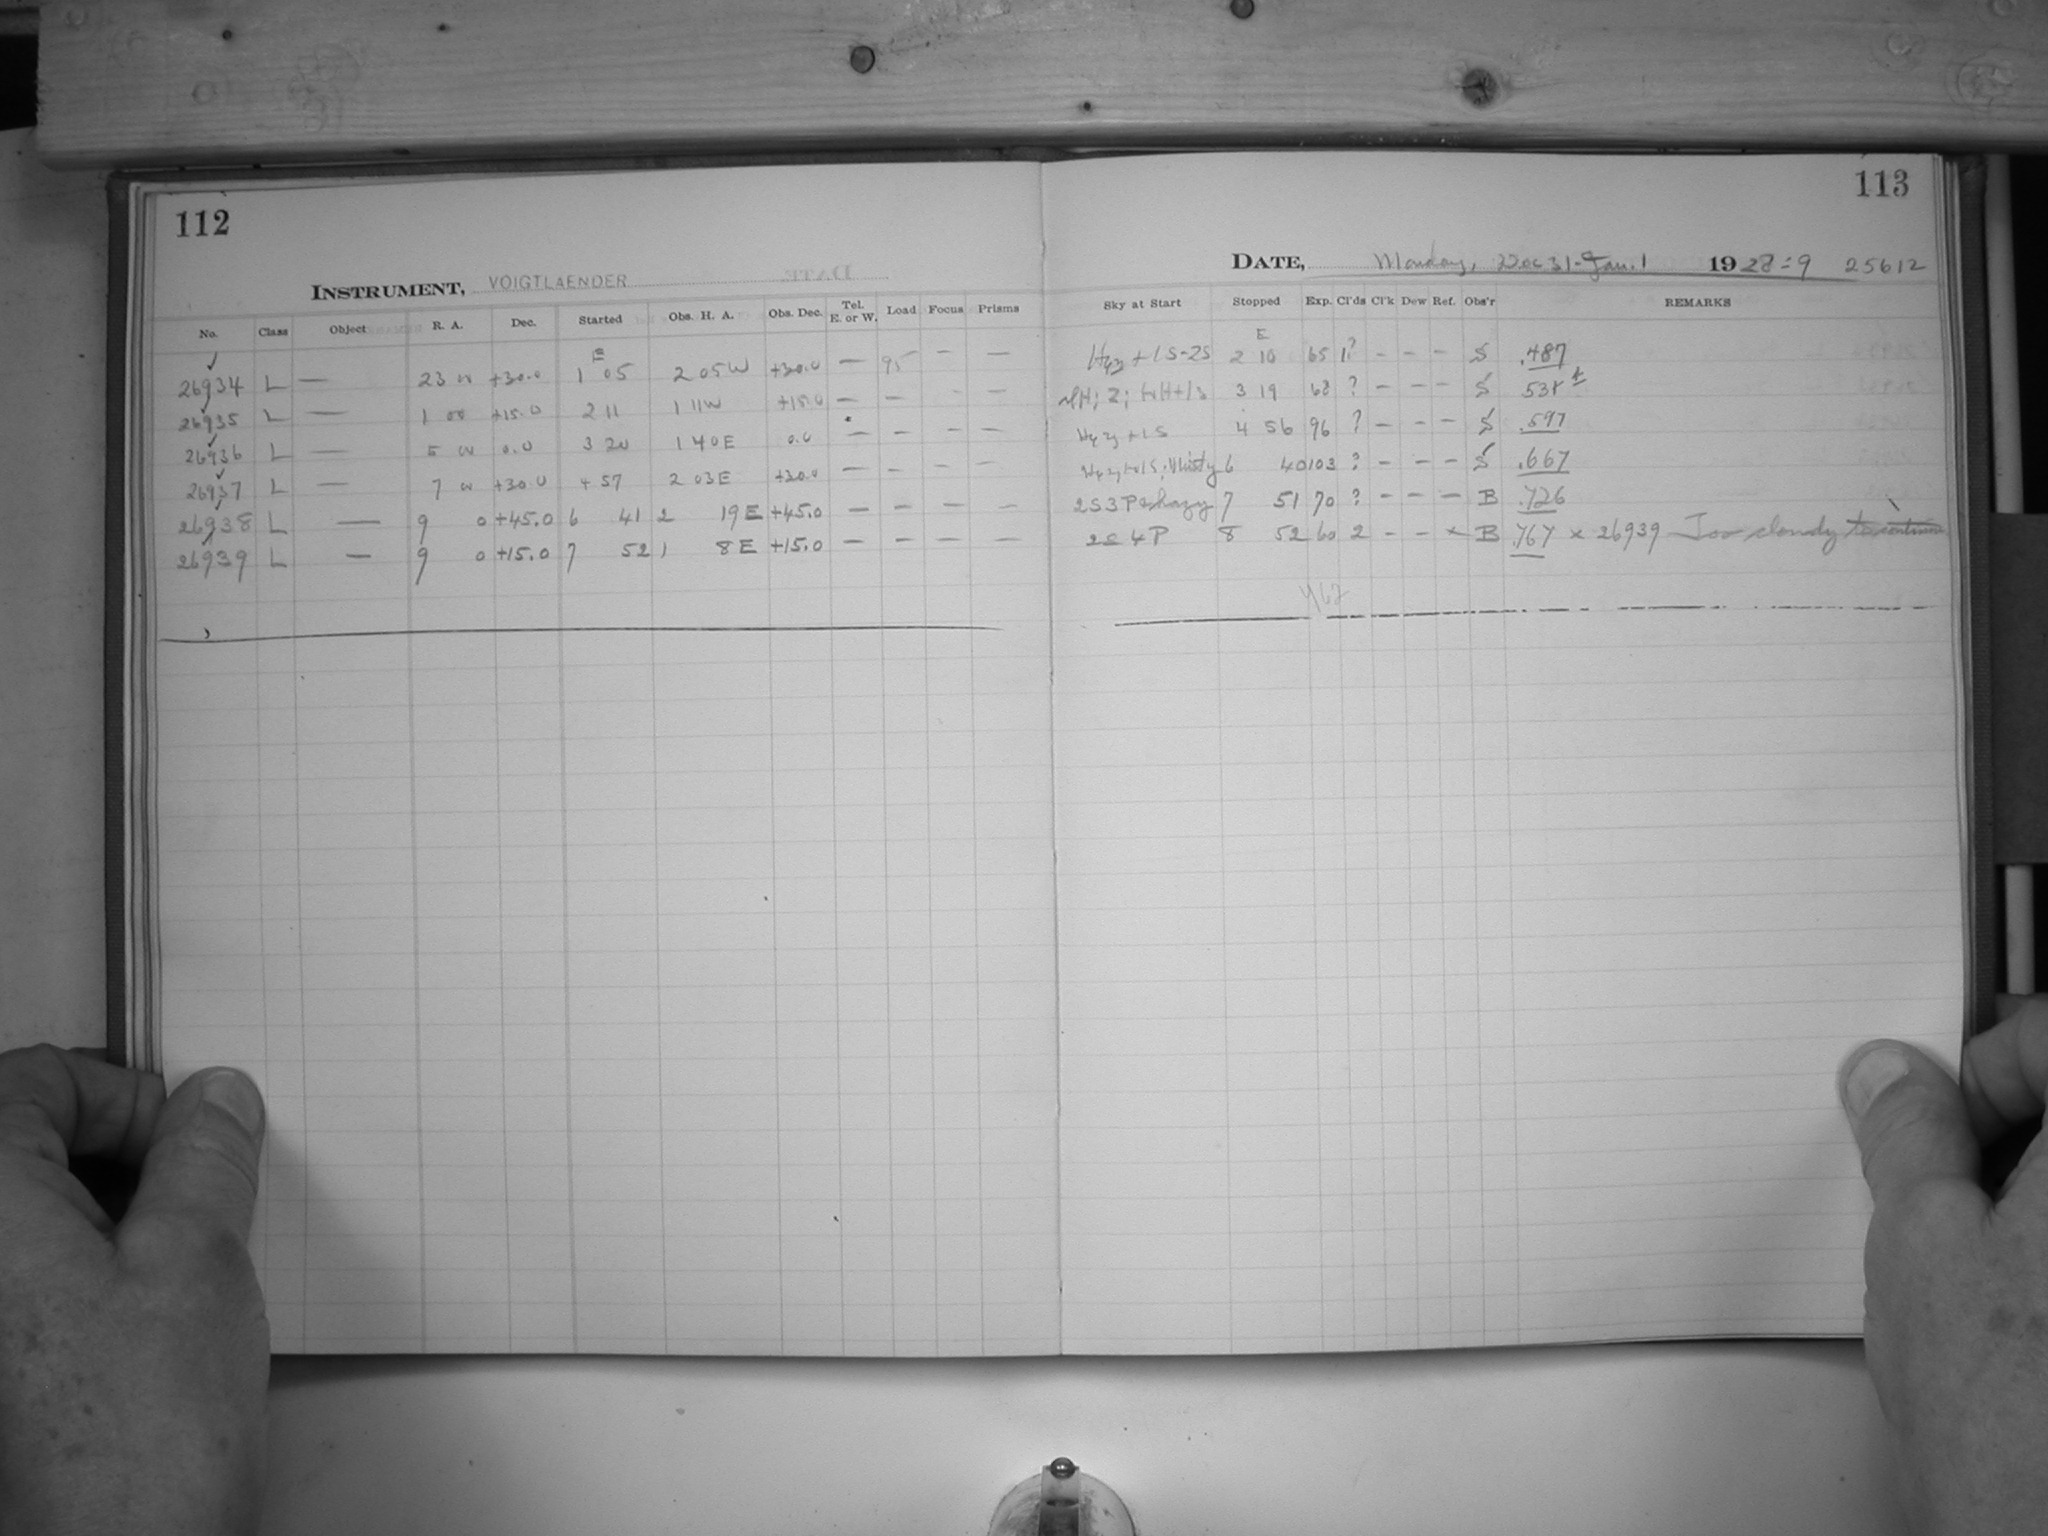 112
INSTRUMENT, VOIGTLAENDER
No. Class Object R. A. Dec. Started Obs. H. A. Obs. Dec. Tel. E. or W. Load Focus Prisms
E
26934 L — 23 00 +30.0 1 05 2 05W +30.0 — 95 — —
26935 L — 1 00 +15.0 2 11 1 11W +15.0 — — - —
26936 L — 5 00 0.0 3 20 1 40E 0.0 — — — —
26937 L — 7 00 +30.0 4 57 2 03E +30.0 — — — —
26938 L — 9 0 +45.0 6 41 2 19E +45.0 — — — —
26939 L — 9 0 +15.0 7 52 1 8E +15.0 — — — —
113
DATE, Monday, Dec 31-Jan. 1 1928-9 25612
Sky at Start Stopped Exp. Cl'ds Cl'k Dew Ref. Obs'r REMARKS
E
+1S-2S 2 10 65 1? - - - S .487
3 19 68 ? - - - S
+1S 4 56 96 ? - - - S .597
Misty 6 40 103 ? - - - S .667
2S3P hazy 7 51 70 ? - - - B .726
2S 4P 8 52 60 2 - - × B .767 × 26939 Too cloudy to continue
462